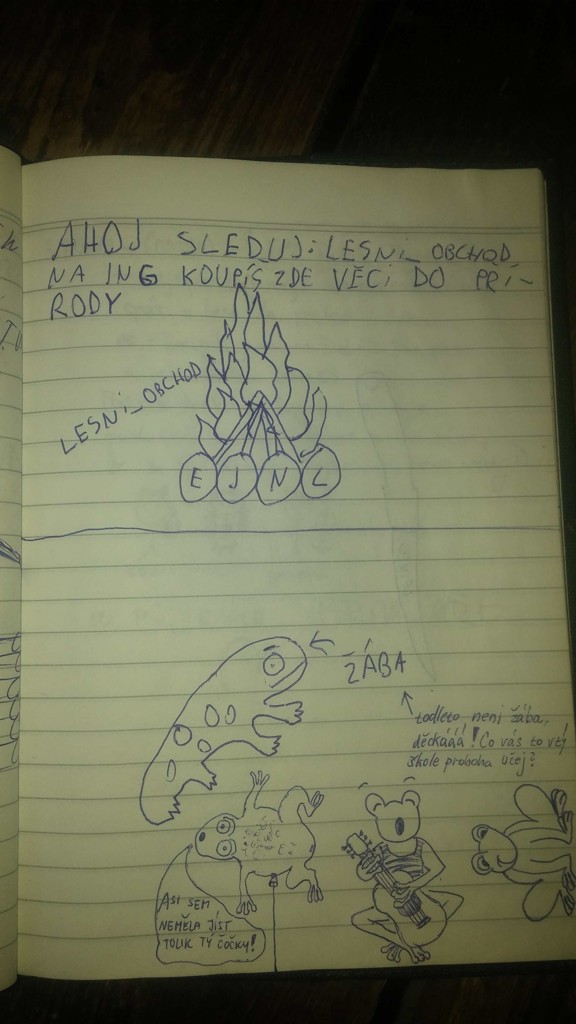 AHOJ SLEDUJ: LESNÍ_OBCHOD
NA ING KOUPÍŠ ZDE VĚCI DO PŘÍ-
RODY
LESNÍ_OBCHOD
E J N L
ŽÁBA
todleto neni žába,
děckááá! Co vás to v tý
škole proboha učej?
ASI SEM
NEMĚLA JÍST
TOLIK TÝ ČOČKY!